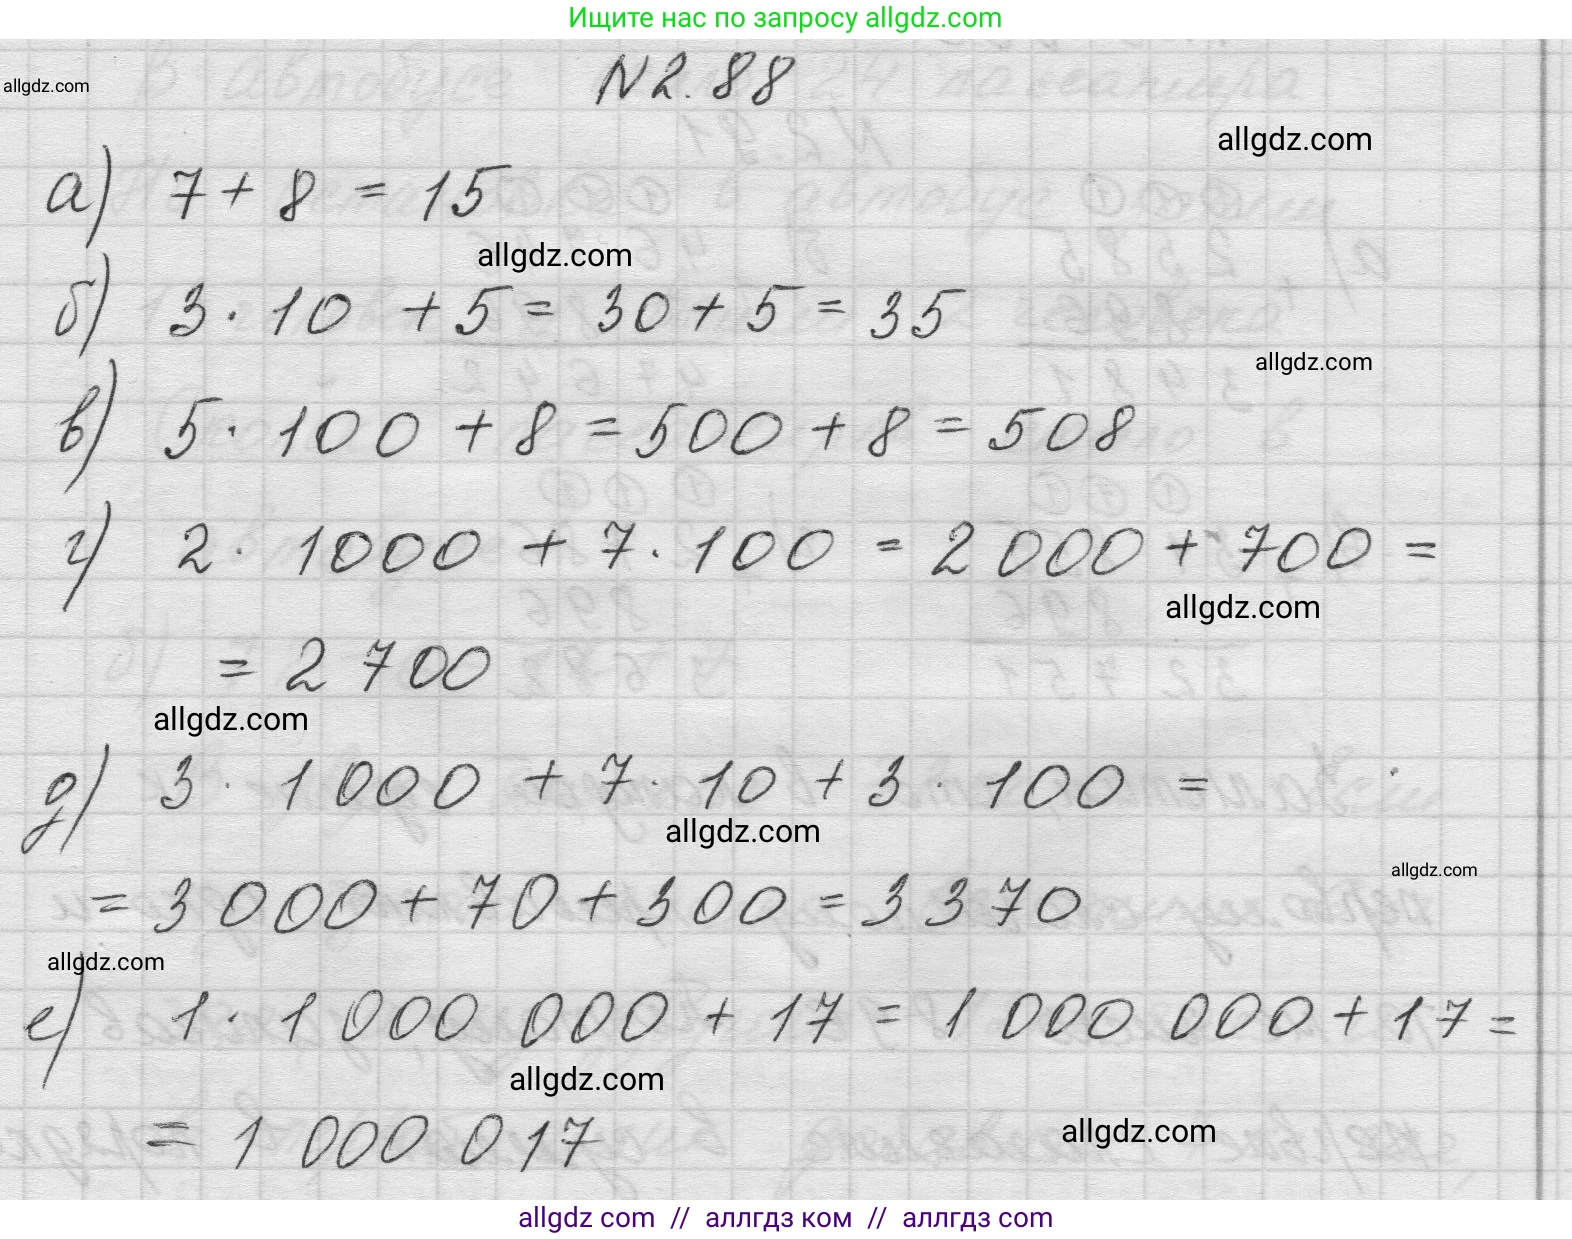 Ищите нас по запросу allgdz.com
N2.88
allgdz.com
allgdz.com
а) 7 + 8 = 15
allgdz.com
б) 3 · 10 + 5 = 30 + 5 = 35
allgdz.com
в) 5 · 100 + 8 = 500 + 8 = 508
г) 2 · 1000 + 7 · 100 = 2 000 + 700 =
allgdz.com
= 2 700
allgdz.com
д) 3 · 1 000 + 7 · 10 + 3 · 100 =
allgdz.com
allgdz.com
= 3 000 + 70 + 300 = 3 370
allgdz.com
е) 1 · 1 000 000 + 17 = 1 000 000 + 17 =
allgdz.com
= 1 000 017
allgdz.com
allgdz com // аллгдз ком // аллгдз com